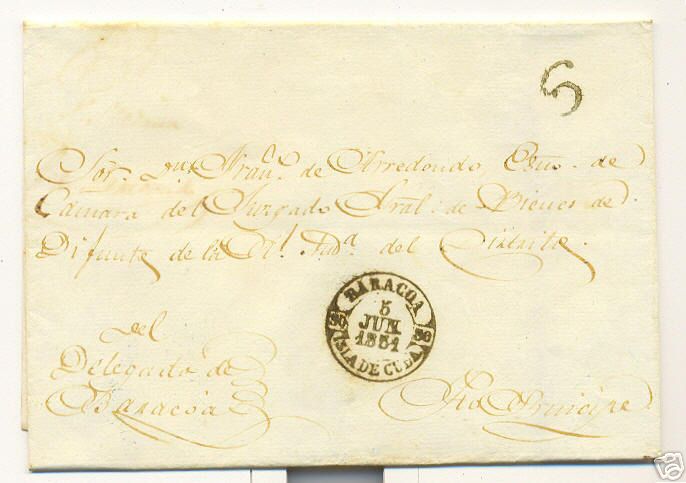 5
Sor. Dn. Franco. de Arredondo, Esno. de
Camara del Juzgado Gral. de Bienes de
Difunto de la Rl. Auda. del Distrito
BARACOA
5
JUN
1851
30 30
ISLA DE CUBA
del
Delegado de
Baracoa
Pto. Principe